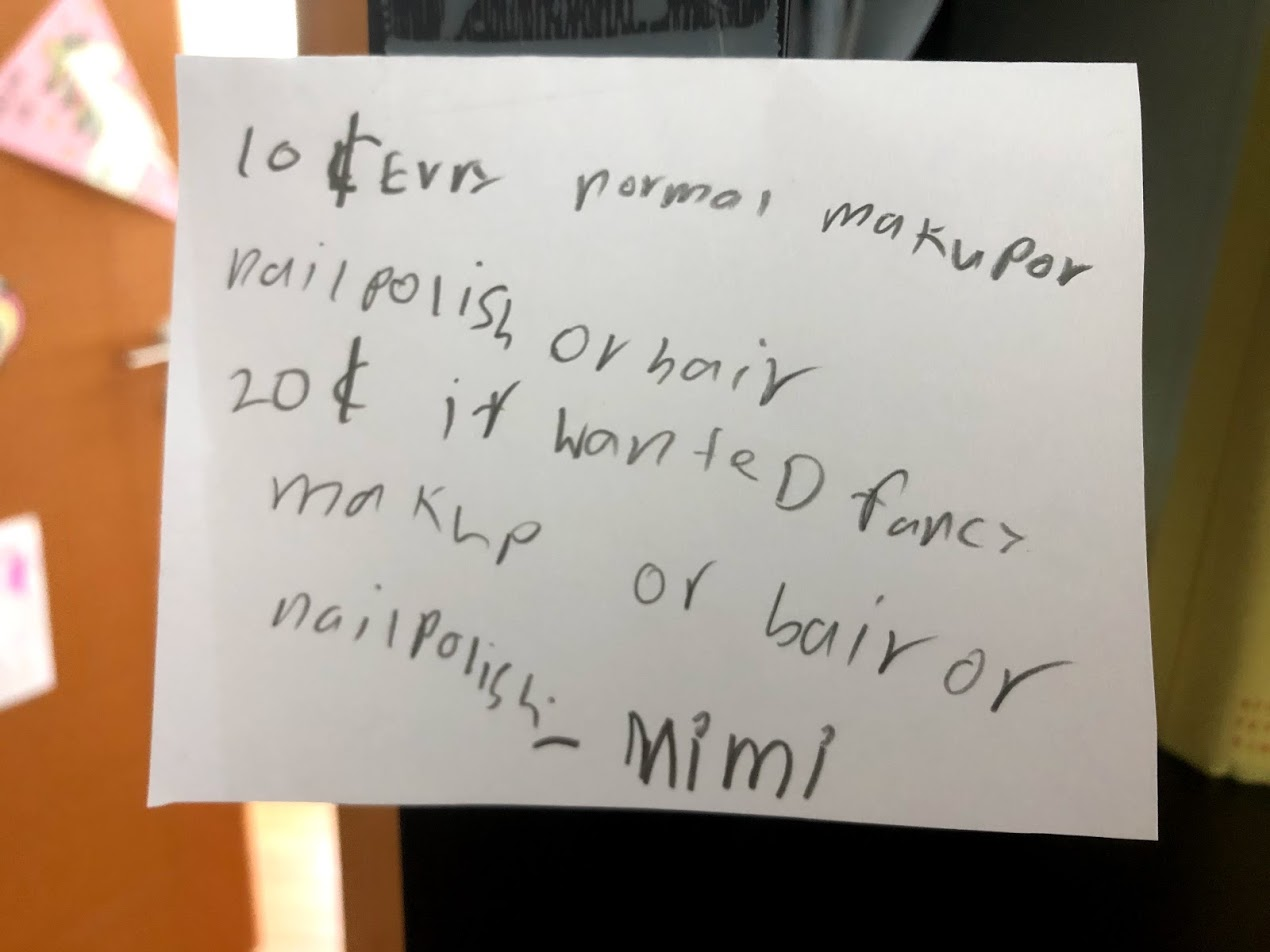 10¢ Evry normal makupor
nailpolish or hair
20¢ if wanteD fancy
makup or hair or
nailpolish. - Mimi